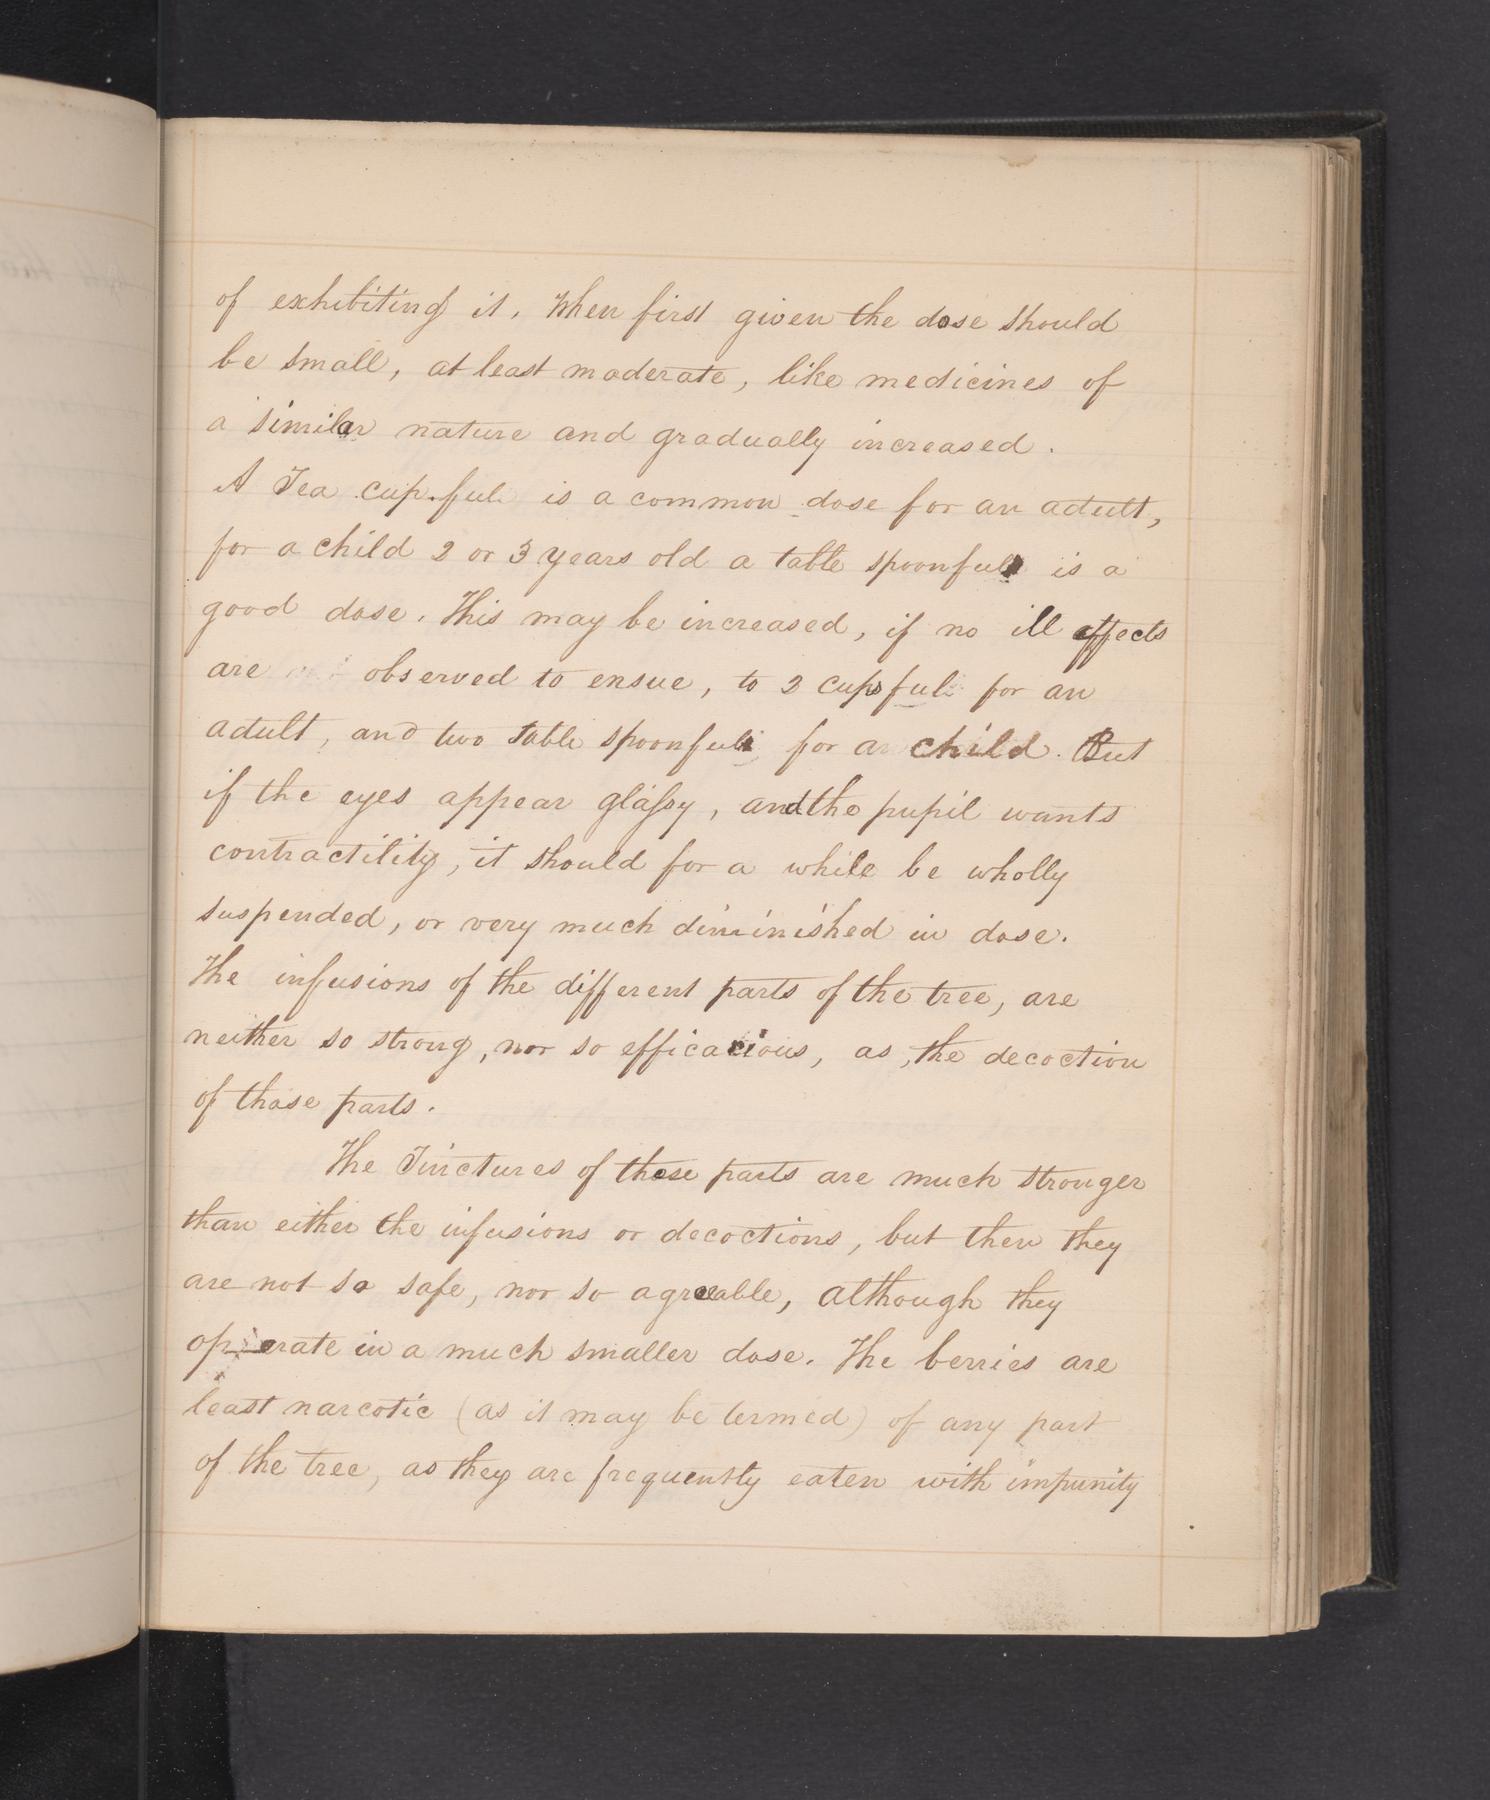 of exhibiting it. When first given the dose should
be small, at least moderate, like medicines of
a similar nature and gradually increased.
A Tea cup.ful is a common dose for an adult,
for a child 2 or 3 years old a table spoonful is a
good dose. This may be increased, if no ill effects
are observed to ensue, to 2 cupsful for an
adult, and two table spoonfuls for a child. But
if the eyes appear glassy, and the pupil wants
contractility, it should for a while be wholly
suspended, or very much diminished in dose.
The infusions of the different parts of the tree, are
neither so strong, nor so efficacious, as, the decoction
of those parts.
The Tinctures of these parts are much stronger
than either the infusions or decoctions, but then they
are not so safe, nor so agreeable, although they
operate in a much smaller dose. The berries are
least narcotic (as it may be termed) of any part
of the tree, as they are frequently eaten with impunity